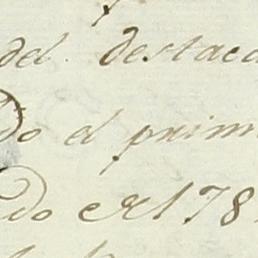 del destaca
do el prim
do el 178